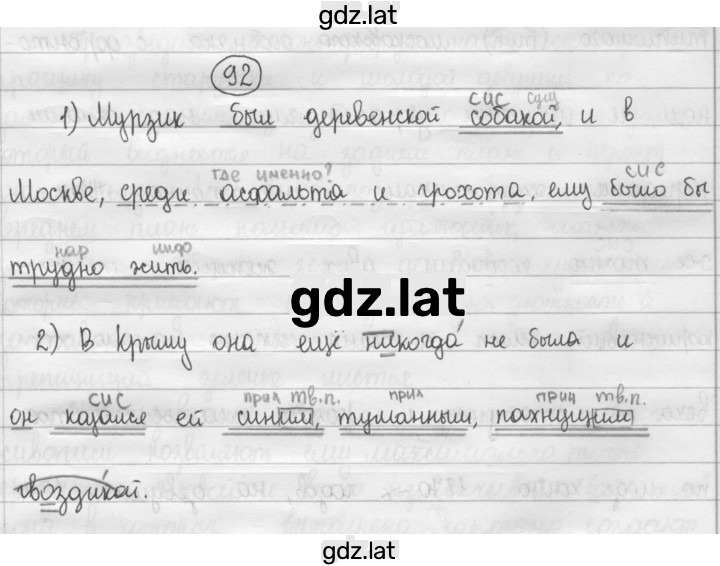 gdz.lat
92
сис сущ
1) Мурзик был деревенской собакой, и в
где именно? сис
Москве, среди асфальта и грохота, ему было бы
нар инф
трудно жить.
gdz.lat
2) В Крыму она ещё никогда не была и
сис прил тв.п. прил прич тв.п.
он казался ей синим, туманным, пахнущим
гвоздикой.
gdz.lat